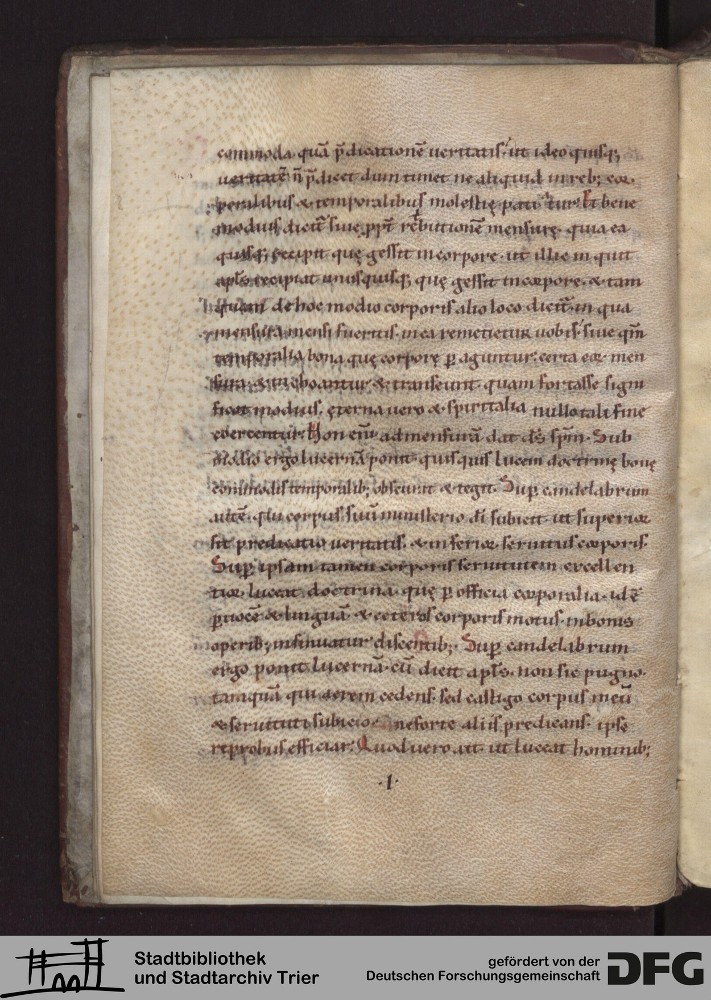 commoda quā p̄dicationē ueritatis. ut ideo quisq;
ueritatē n̄ p̄dicet dum timet ne aliquid in reb; cor
poralibus & temporalibus molestię patiatur. Et bene
modius dicit̄ siue ppt̄ retributionē mensurę. quia ea
quisq; recipit quę gessit in corpore. ut illic inquit
apl̄s recipiat unusquisq; quę gessit in corpore. & tam
quam de hoc modio corporis alio loco dicit̄. in qua
mensura mensi fueritis. in ea remetietur uobis. siue qm̄
temporalia bona quę corpore ꝑaguntur. certa eor men
sura & inchoantur & transeunt. quam fortasse signi
ficat modius. ęterna uero & spiritalia nullo tali fine
coercentur. Non enī ad mensurā dat ds̄ spm̄. Sub
modio ergo lucernā ponit. quisquis lucem doctrinę bonę
commodis temporalib; obscurat & tegit. Sup candelabrum
autē. qui corpus suū ministerio dī subicit. ut superior
sit predicatio ueritatis. & inferior seruitus corporis.
Sup ipsam tamen corporis seruitutem excellen
tior luceat doctrina. quę ꝑ officia corporalia. id ē
ꝑ uocē & linguā & ceteros corporis motus. in bonis
operib; insinuatur discentib;. Sup candelabrum
ergo ponit lucernā. cū dicit apl̄s. non sic pugno.
tamquā qui aerem cedens. sed castigo corpus meū
& seruituti subicio. ne forte aliis predicans. ipse
reprobus efficiar. Quod uero ait. ut luceat hominib;
.I.
Stadtbibliothek
und Stadtarchiv Trier
gefördert von der
Deutschen Forschungsgemeinschaft
DFG